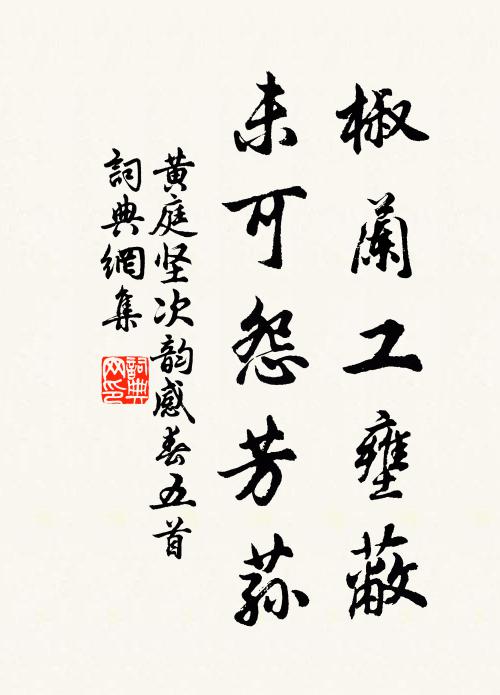 椒蘭工壅蔽
未可怨芳蓀
黄庭坚次韵感春五首
詞典網集
詞典網印